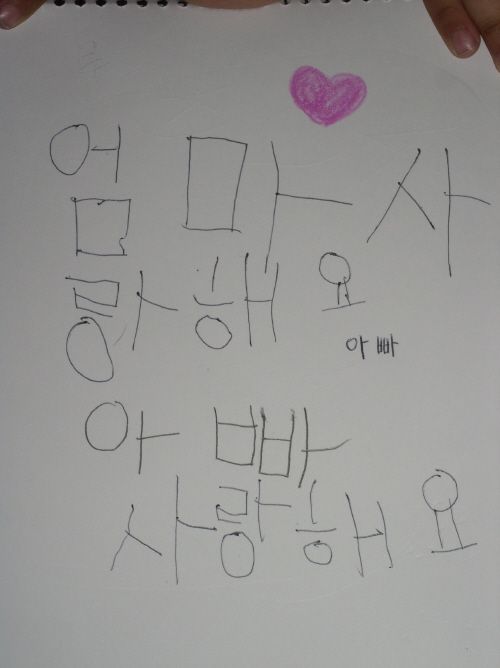 엄마사
랑해요
아빠
아빠
사랑해요